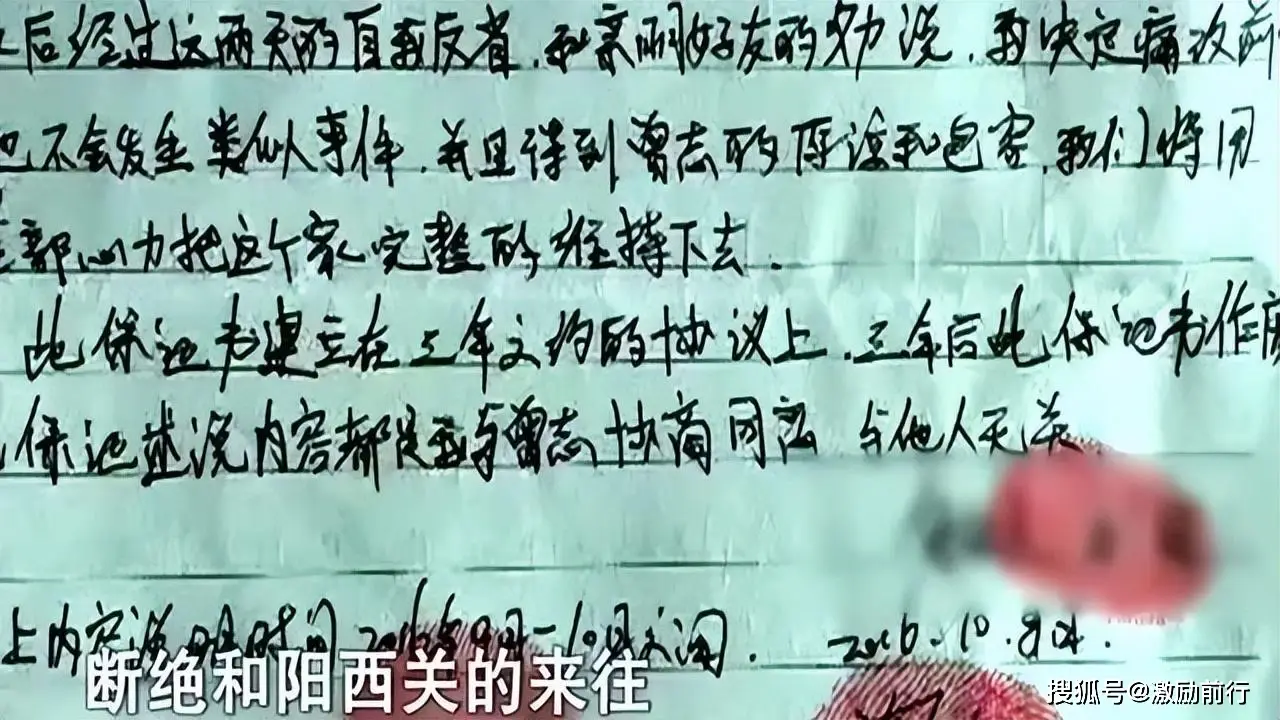 后经过这两天的自我反省,和亲朋好友的劝说,我决定痛改前
不会发生类似事件,并且得到曾志的原谅和包容,我们将用
部心力把这个家完整的维持下去.
此保证书建立在三年之约的协议上,三年后此保证书作废
保证述说内容都是我与曾志协商同意 与他人无关
上内容说明时间2016年9月-10月之间. 2016.10.8日.
断绝和阳西关的来往
搜狐号@激励前行